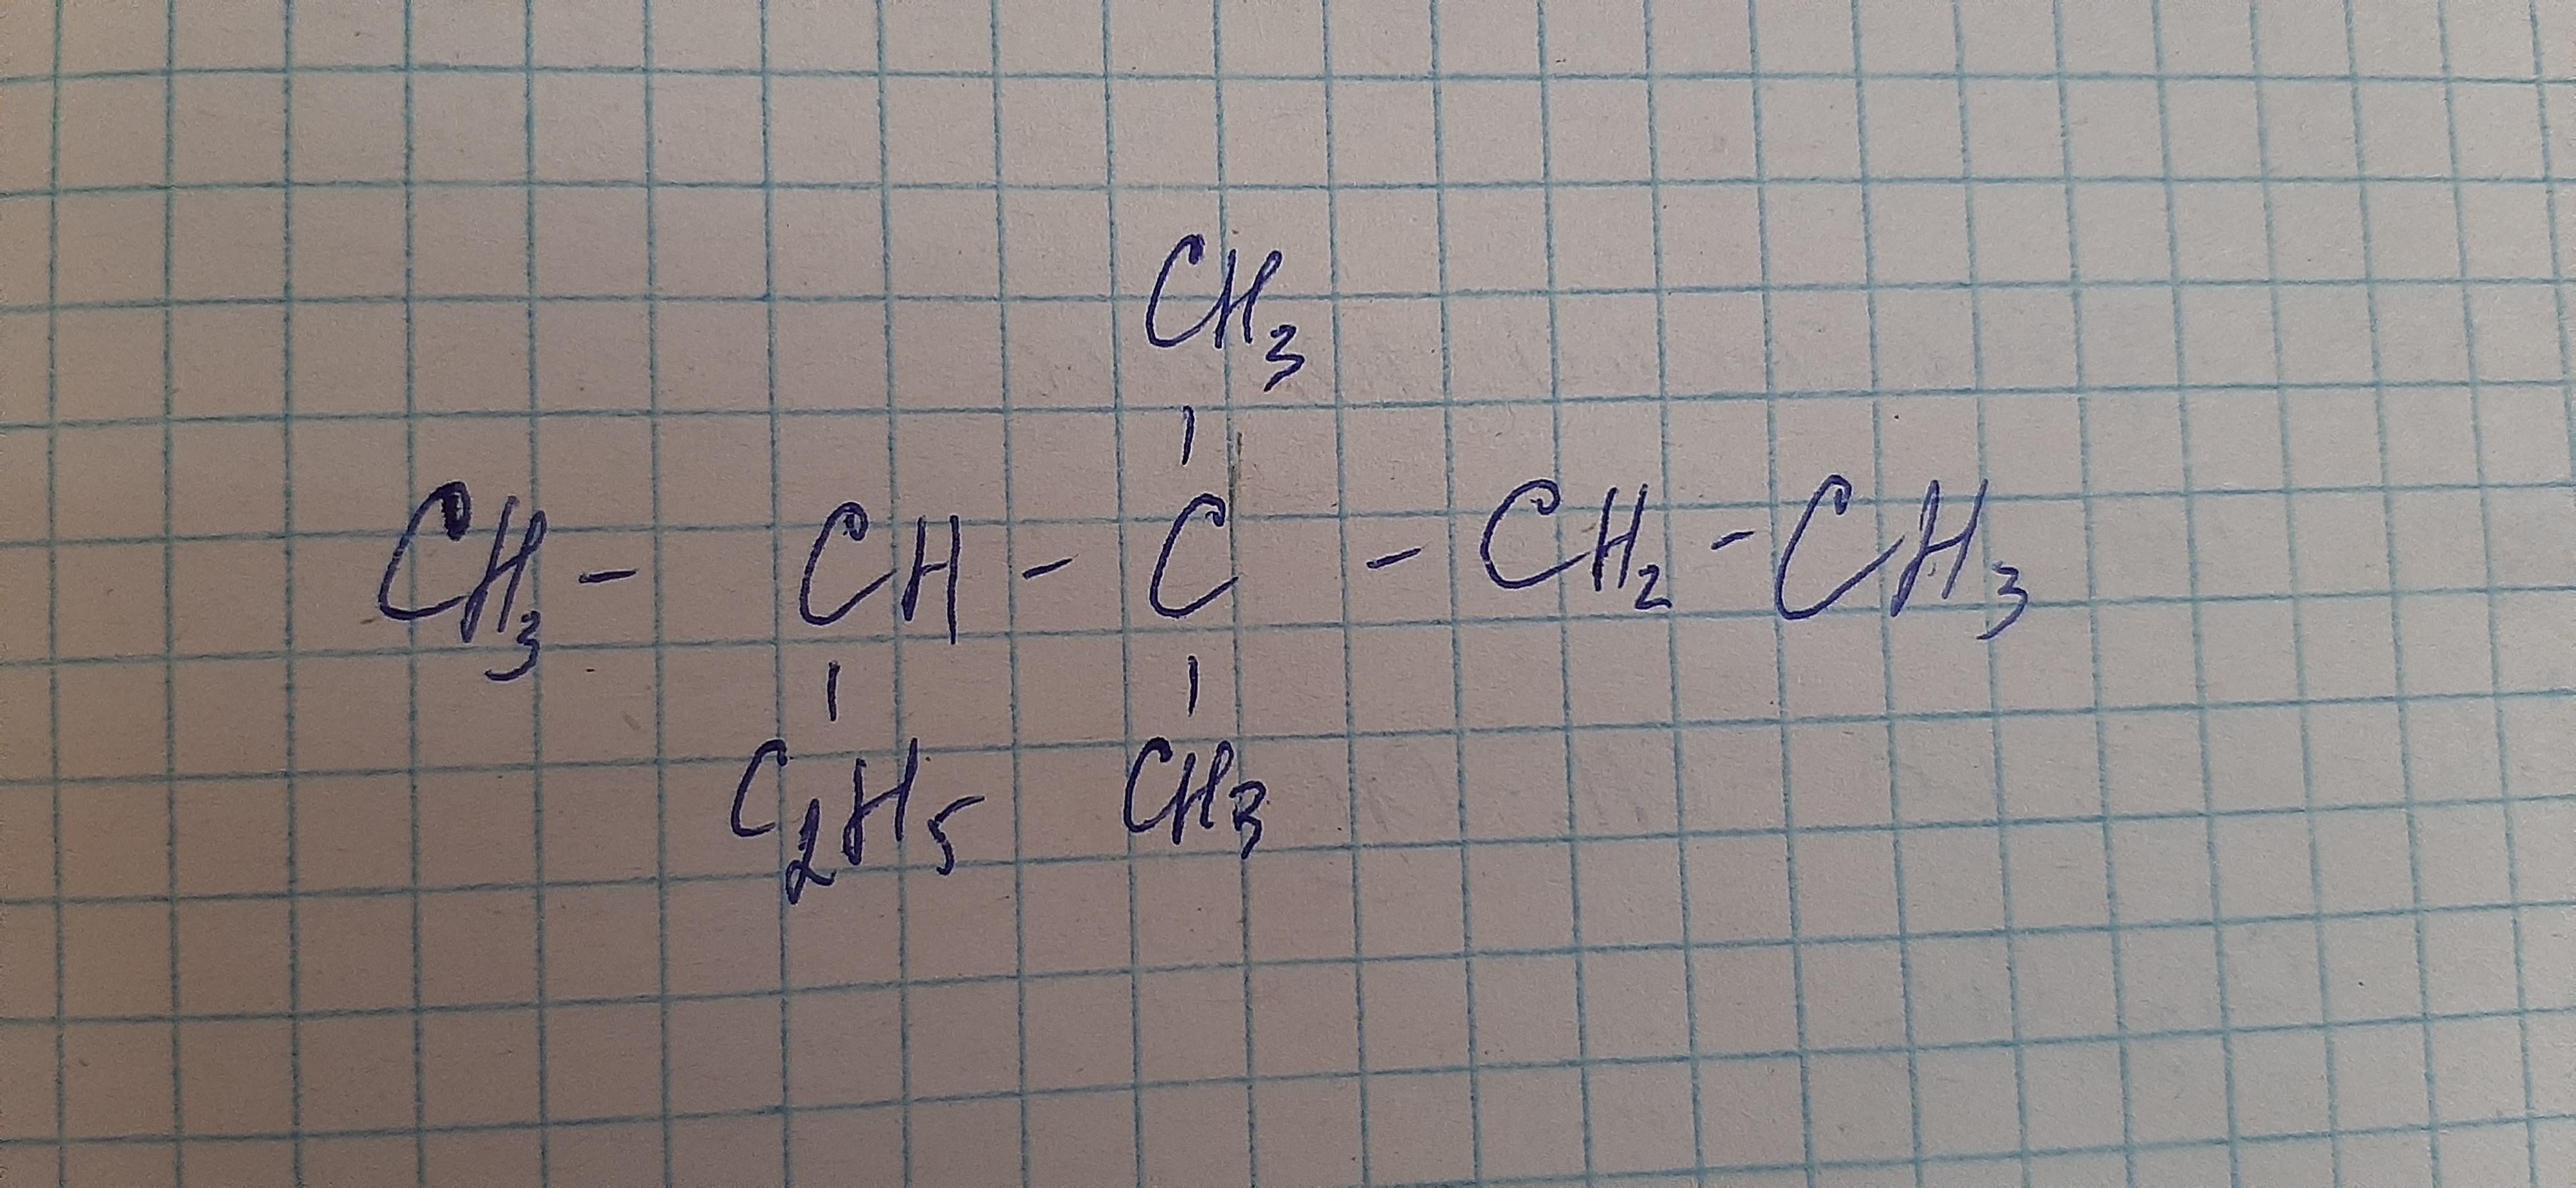 CH3
CH3 - CH - C - CH2 - CH3
C2H5 CH3